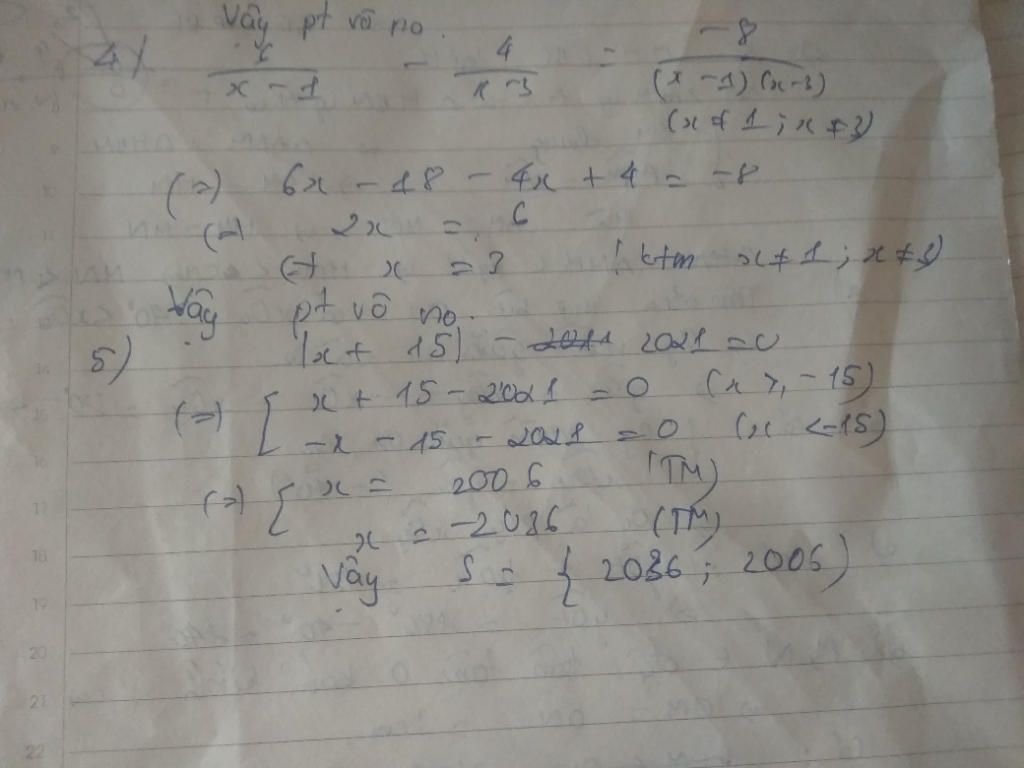 Vậy pt vô no.
4) 6/(x - 1) - 4/(x - 3) = -8/((x - 1)(x - 3))
(x ≠ 1 ; x ≠ 3)
(=) 6x - 18 - 4x + 4 = -8
(=) 2x = 6
(=) x = 3 (ktm x ≠ 1 ; x ≠ 3)
Vậy pt vô no.
5) |x + 15| - 2021 = 0
(=) [ x + 15 - 2021 = 0 (x >, -15)
-x - 15 - 2021 = 0 (x < -15)
(=) { x = 2006 (TM)
x = -2036 (TM)
Vậy S = { 2036 ; 2006 )
7
8
9
10
11
14
15
16
17
18
19
20
21
22